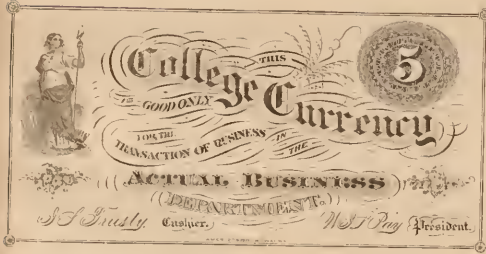 THIS
College Currency
5
IS GOOD ONLY
FOR THE
TRANSACTION OF BUSINESS IN THE
ACTUAL BUSINESS
DEPARTMENT.
I.S. Trusty. Cashier.
President.